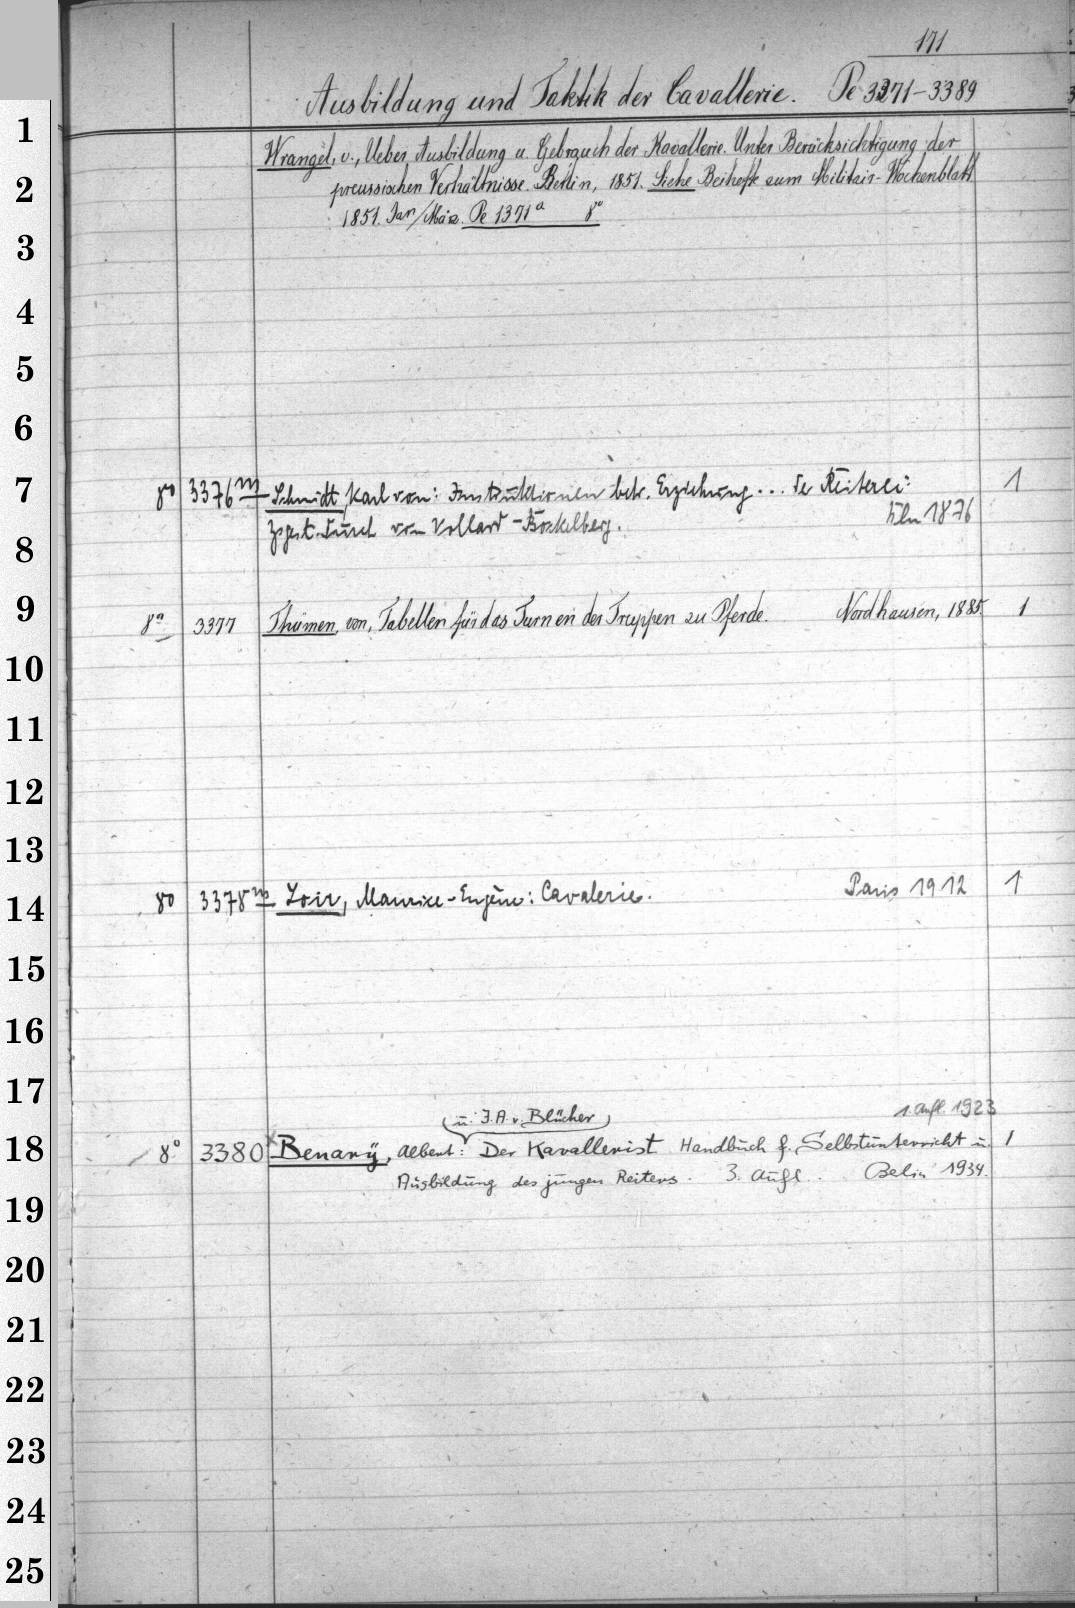 171
Ausbildung und Taktik der Cavallerie. Pe 3371-3389
1
Wrangel, v., Ueber Ausbildung u. Gebrauch der Kavallerie. Unter Berücksichtigung der
2
preussischen Verhältnisse. Berlin, 1851. Siehe Beihefte zum Militair-Wochenblatt
1851. Jan/März. Pe 1371ª 8°
3
4
5
6
7
8° 3376m Schmidt, Karl von: Instruktionen betr. Erziehung... der Reiterei: 1
Zsgest. durch von Vollard-Bockelberg. Bln 1876
8
9
8° 3377 Thümen, von, Tabellen für das Turnen der Truppen zu Pferde. Nordhausen, 1885 1
10
11
12
13
14
8° 3378m Loir, Maurice-Eugène: Cavalerie. Paris 1912 1
15
16
17
(u. J.A.v. Blücher) 1. Aufl. 1923
18
8° 3380 Benary, Albert: Der Kavallerist Handbuch f. Selbstunterricht u. 1
Ausbildung des jungen Reiters. 3. Aufl.. Berlin 1934.
19
20
21
22
23
24
25